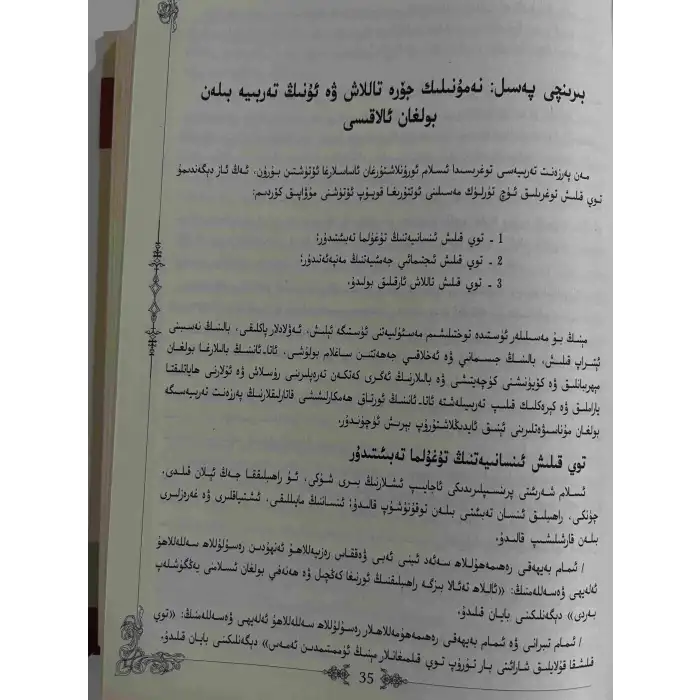 بىرىنچى پەسىل: نەمۇنىلىك جۆرە تاللاش ۋە ئۇنىڭ تەربىيە بىلەن
بولغان ئالاقىسى
مەن پەرزەنت تەربىيەسى توغرىسىدا ئىسلام ئورۇنلاشتۇرغان ئاساسلارغا ئۆتۈشتىن بۇرۇن، ئەڭ ئاز دېگەندىمۇ
توي قىلىش توغرىلىق ئۈچ تۈرلۈك مەسىلىنى ئوتتۇرىغا قويۇپ ئۆتۈشنى مۇۋاپىق كۆردىم:
1 - توي قىلىش ئىنسانىيەتنىڭ تۇغۇلما تەبىئىتىدۇر؛
2 - توي قىلىش ئىجتىمائىي جەمئىيەتنىڭ مەنپەئەتىدۇر؛
3 - توي قىلىش تاللاش ئارقىلىق بولىدۇ.
مېنىڭ بۇ مەسىلىلەر ئۈستىدە توختىلىشىم مەسئۇلىيەتنى ئۈستىگە ئېلىش، ئەۋلادلار پاكلىقى، بالىنىڭ نەسىبىنى
ئېتىراپ قىلىش، بالىنىڭ جىسمانىي ۋە ئەخلاقىي جەھەتتىن ساغلام بولۇشى، ئاتا-ئانىنىڭ بالىلارغا بولغان
مېھرىبانلىق ۋە كۆيۈنۈشنى كۈچەيتىشى ۋە بالىلارنىڭ ئەگرى كەتكەن تەرەپلىرىنى رۇسلاش ۋە ئۇلارنى ھاياتلىقتا
ياراملىق ۋە كېرەكلىك قىلىپ تەربىيىلەشتە ئاتا-ئانىنىڭ ئورتاق ھەمكارلىشىشى قاتارلىقلارنىڭ پەرزەنت تەربىيەسىگە
بولغان مۇناسىۋەتلىرىنى ئېنىق ئايدىڭلاشتۇرۇپ بېرىش ئۈچۈندۇر.
توي قىلىش ئىنسانىيەتنىڭ تۇغۇلما تەبىئىتىدۇر
ئىسلام شەرىئىتى پرىنسىپلىرىدىكى ئاجايىپ ئىشلارنىڭ بىرى شۇكى، ئۇ راھىبلىققا جەڭ ئېلان قىلدى.
چۈنكى، راھىبلىق ئىنسان تەبىئىتى بىلەن توقۇنۇشۇپ قالىدۇ؛ ئىنساننىڭ مايىللىقى، ئىشتىياقلىرى ۋە غەرەزلىرى
بىلەن قارشىلىشىپ قالىدۇ.
/ ئىمام بەيھەقى رەھىمەھۇللاھ سەئەد ئىبنى ئەبى ۋەققاس رەزىيەللاھۇ ئەنھۇدىن رەسۇلۇللاھ سەللەللاھۇ
ئەلەيھى ۋەسەللەمنىڭ: «ئاللاھ تەئالا بىزگە راھىبلىقنىڭ ئورنىغا كەڭچىل ۋە ھەنەفى بولغان ئىسلامنى يەڭگۈشلەپ
بەردى» دېگەنلىكىنى بايان قىلىدۇ.
/ ئىمام تىبرانى ۋە ئىمام بەيھەقى رەھىمەھۇمەللاھلار رەسۇلۇللاھ سەللەللاھۇ ئەلەيھى ۋەسەللەمنىڭ: «توي
قىلىشقا قۇلايلىق شارائىتى بار تۇرۇپ توي قىلمىغانلار مېنىڭ ئۈممىتىمدىن ئەمەس» دېگەنلىكىنى بايان قىلىدۇ.
35